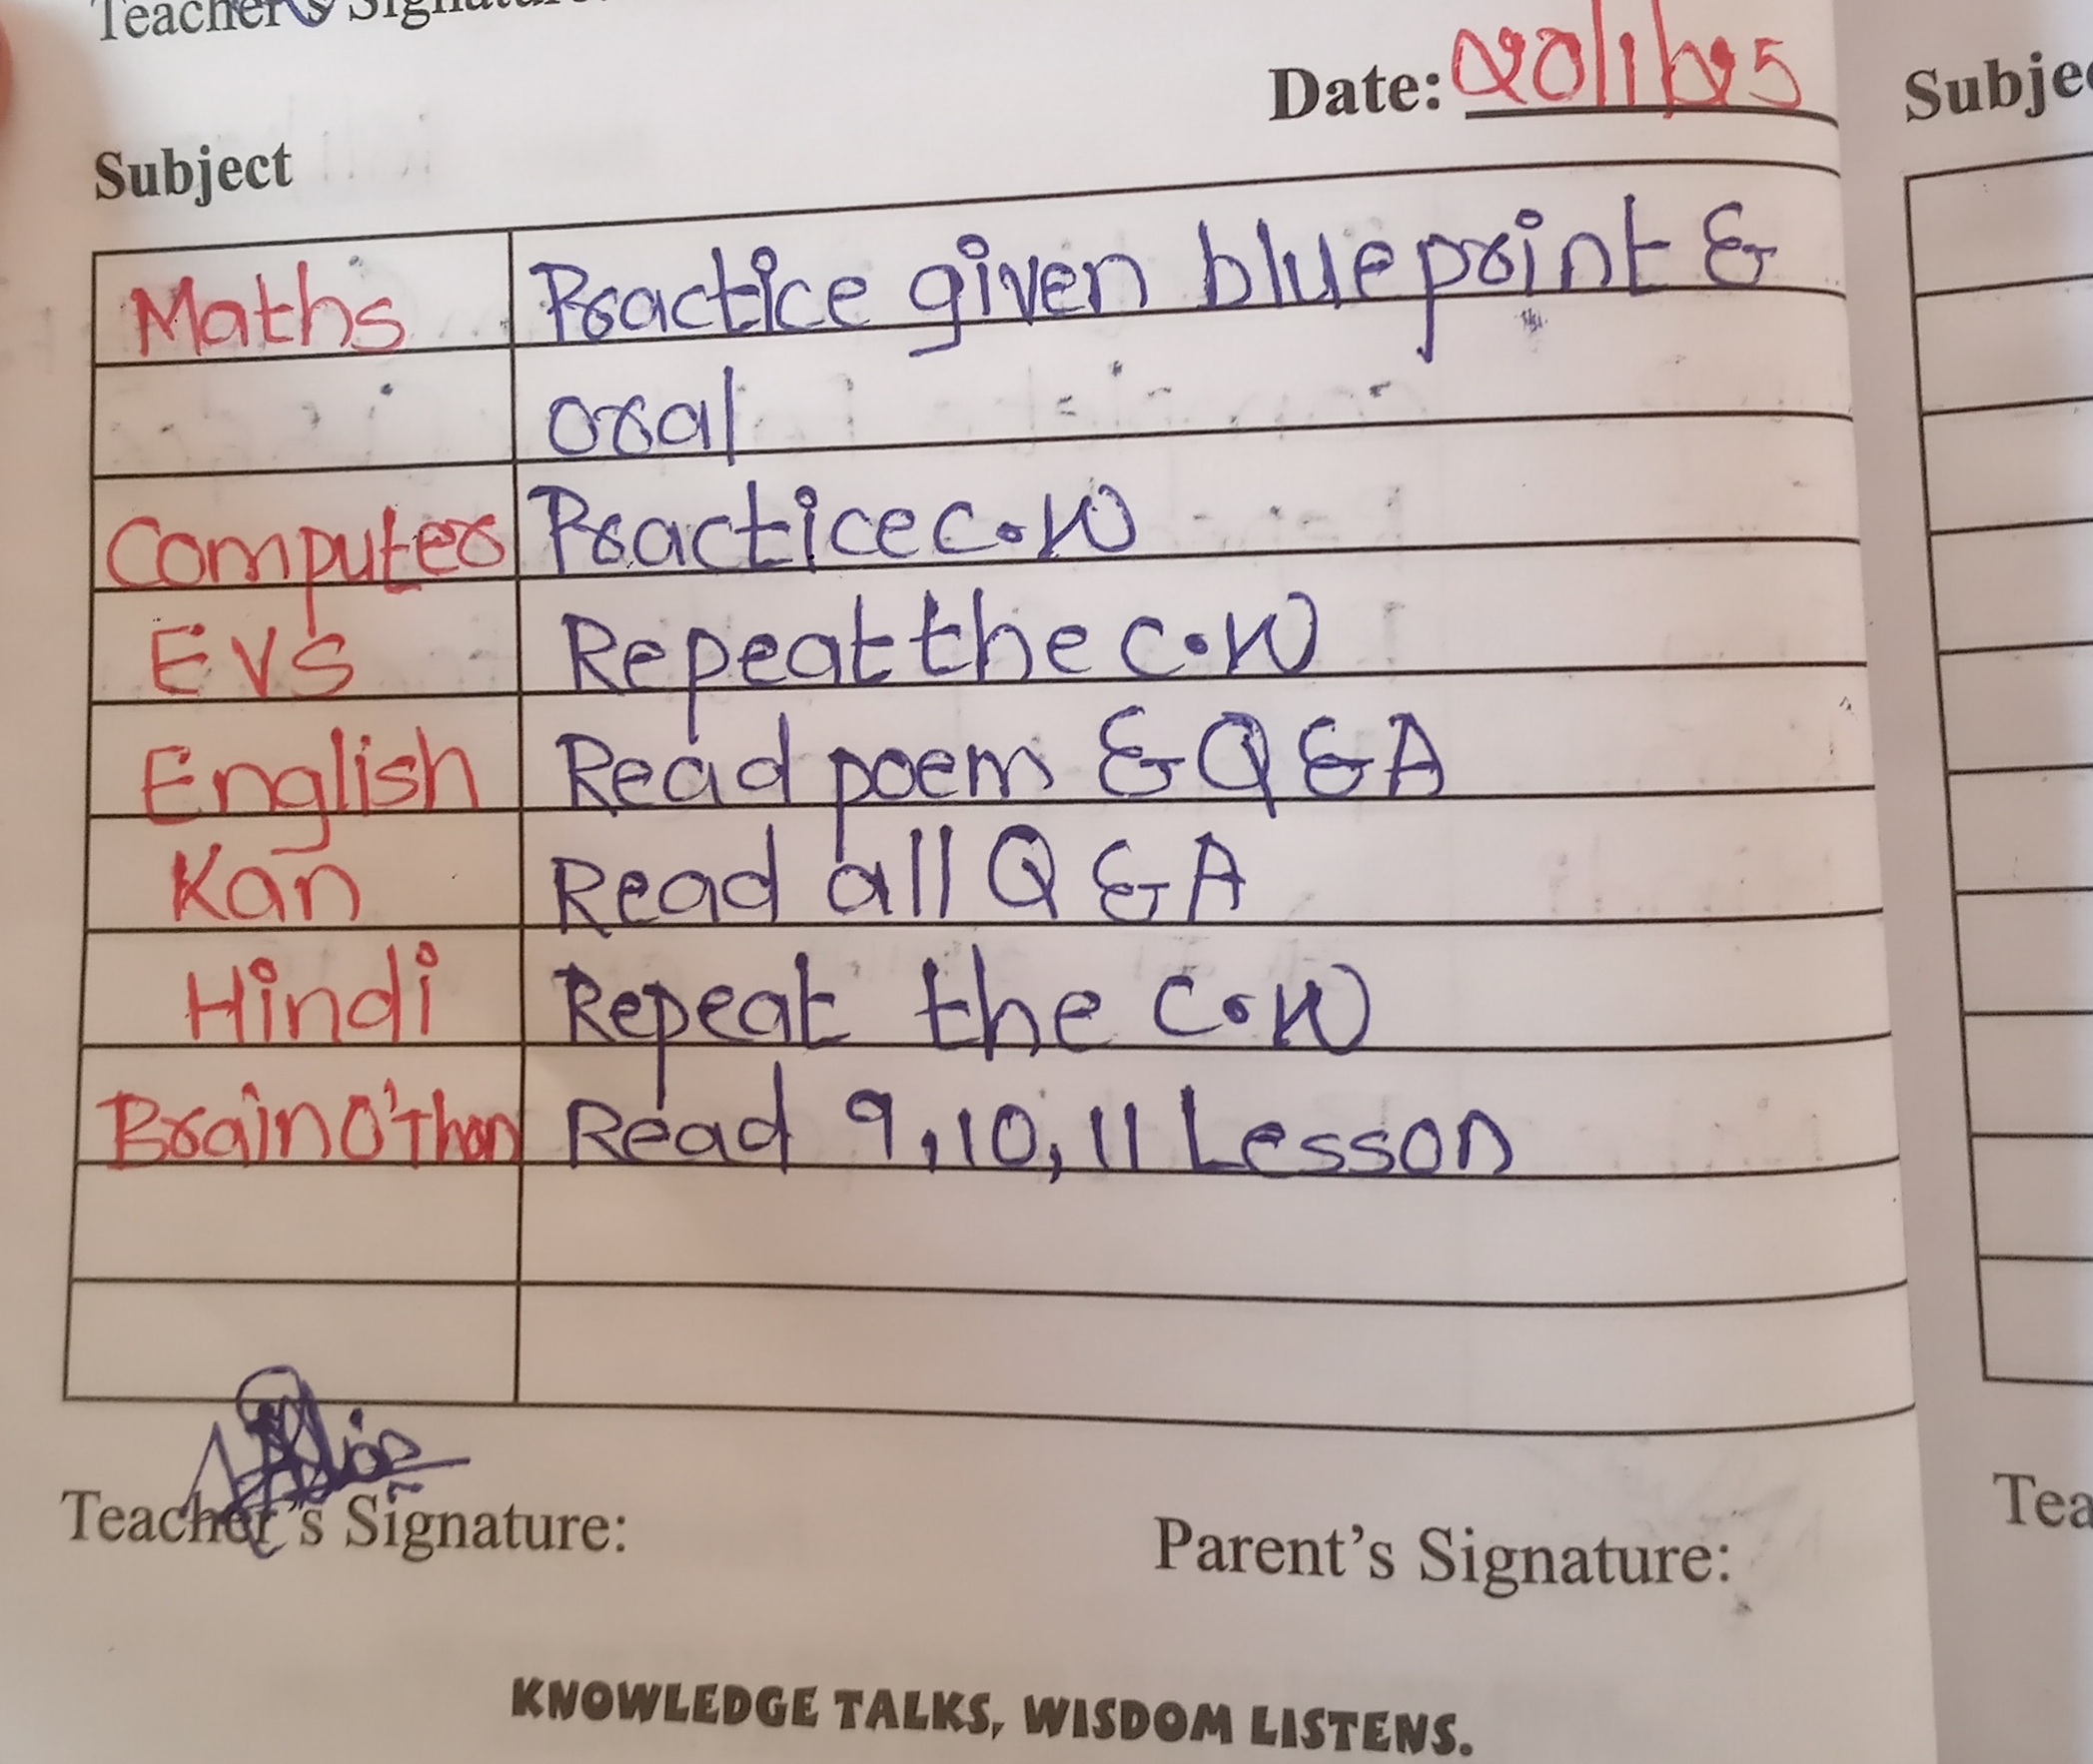 Teacher's Signature:
Date: 20/1/25
Subject
Maths Practice given blueprint &
oral
Computer Practice C.W
EVS Repeat the C.W
English Read poem & Q & A
Kan Read all Q & A
Hindi Repeat the C.W
BrainO'Than Read 9,10,11 Lesson
Teacher's Signature:
Parent's Signature:
KNOWLEDGE TALKS, WISDOM LISTENS.